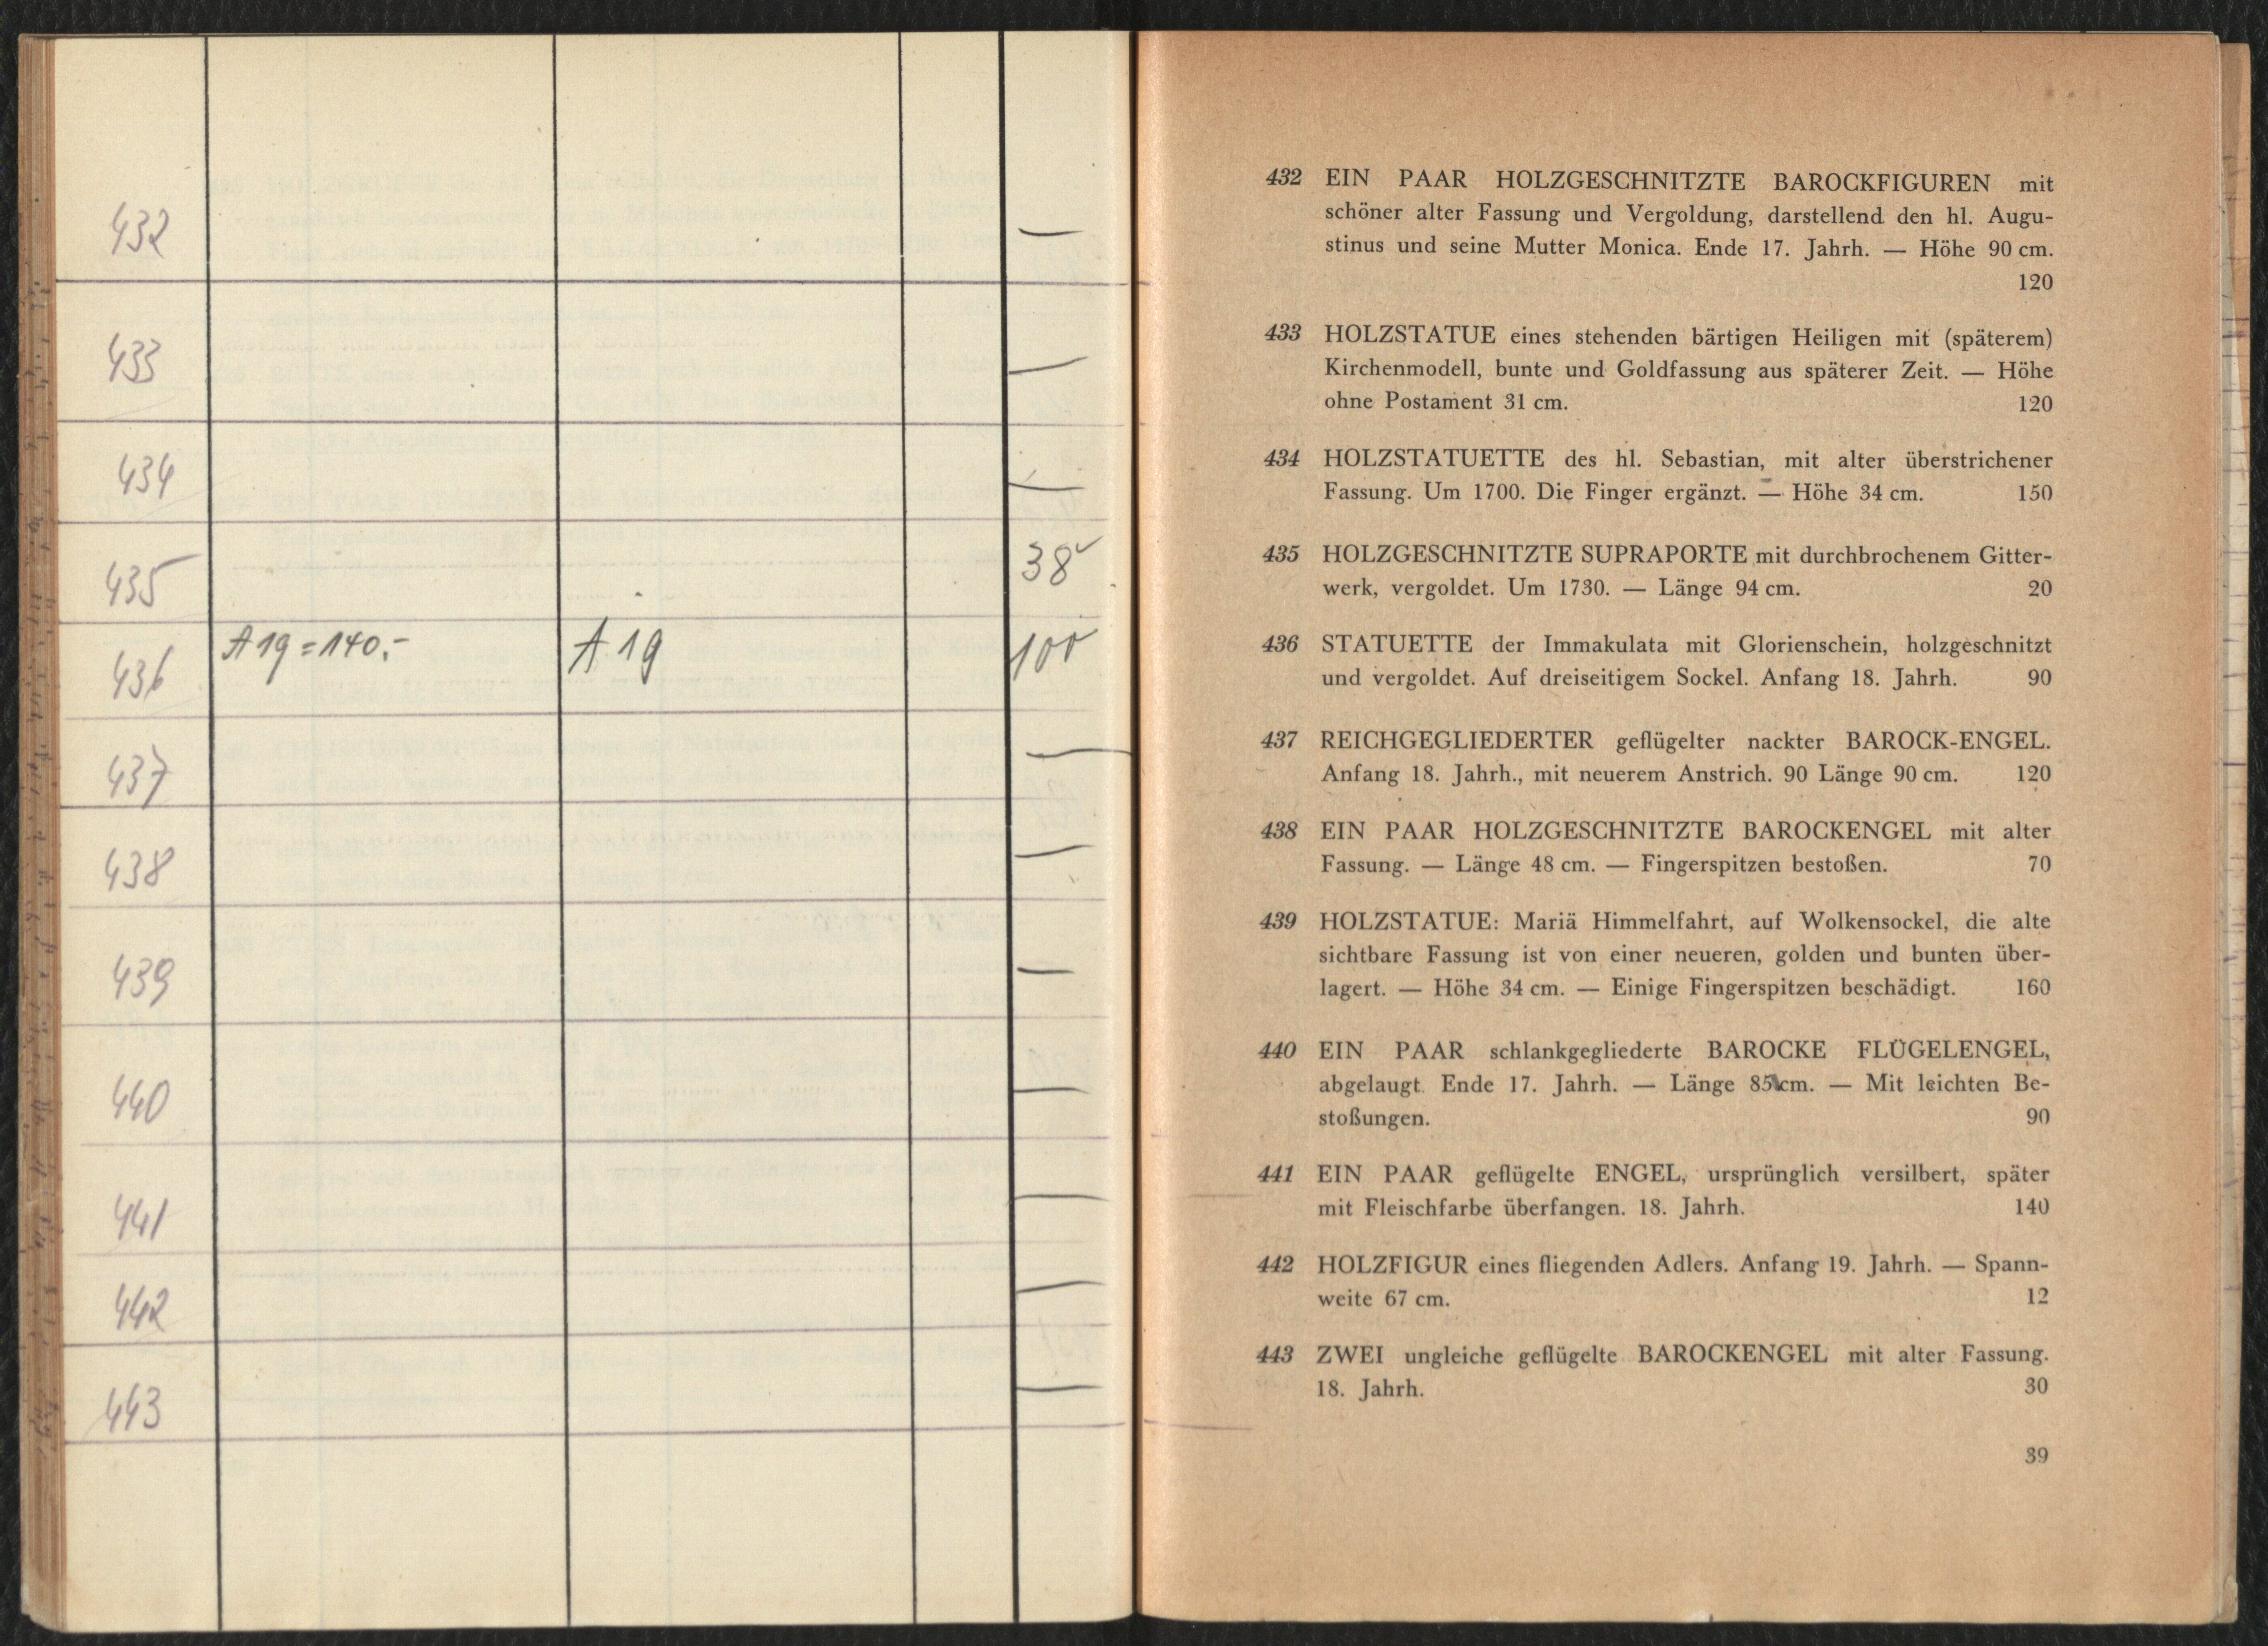 432 —
433 —
434 —
435 38
436 A 19 = 140,- A 19 100
437 —
438 —
439 —
440 —
441 —
442 —
443 —
432 EIN PAAR HOLZGESCHNITZTE BAROCKFIGUREN mit
schöner alter Fassung und Vergoldung, darstellend den hl. Augu-
stinus und seine Mutter Monica. Ende 17. Jahrh. — Höhe 90 cm.
120
433 HOLZSTATUE eines stehenden bärtigen Heiligen mit (späterem)
Kirchenmodell, bunte und Goldfassung aus späterer Zeit. — Höhe
ohne Postament 31 cm. 120
434 HOLZSTATUETTE des hl. Sebastian, mit alter überstrichener
Fassung. Um 1700. Die Finger ergänzt. — Höhe 34 cm. 150
435 HOLZGESCHNITZTE SUPRAPORTE mit durchbrochenem Gitter-
werk, vergoldet. Um 1730. — Länge 94 cm. 20
436 STATUETTE der Immakulata mit Glorienschein, holzgeschnitzt
und vergoldet. Auf dreiseitigem Sockel. Anfang 18. Jahrh. 90
437 REICHGEGLIEDERTER geflügelter nackter BAROCK-ENGEL.
Anfang 18. Jahrh., mit neuerem Anstrich. 90 Länge 90 cm. 120
438 EIN PAAR HOLZGESCHNITZTE BAROCKENGEL mit alter
Fassung. — Länge 48 cm. — Fingerspitzen bestoßen. 70
439 HOLZSTATUE: Mariä Himmelfahrt, auf Wolkensockel, die alte
sichtbare Fassung ist von einer neueren, golden und bunten über-
lagert. — Höhe 34 cm. — Einige Fingerspitzen beschädigt. 160
440 EIN PAAR schlankgegliederte BAROCKE FLÜGELENGEL,
abgelaugt. Ende 17. Jahrh. — Länge 85 cm. — Mit leichten Be-
stoßungen. 90
441 EIN PAAR geflügelte ENGEL, ursprünglich versilbert, später
mit Fleischfarbe überfangen. 18. Jahrh. 140
442 HOLZFIGUR eines fliegenden Adlers. Anfang 19. Jahrh. — Spann-
weite 67 cm. 12
443 ZWEI ungleiche geflügelte BAROCKENGEL mit alter Fassung.
18. Jahrh. 30
39